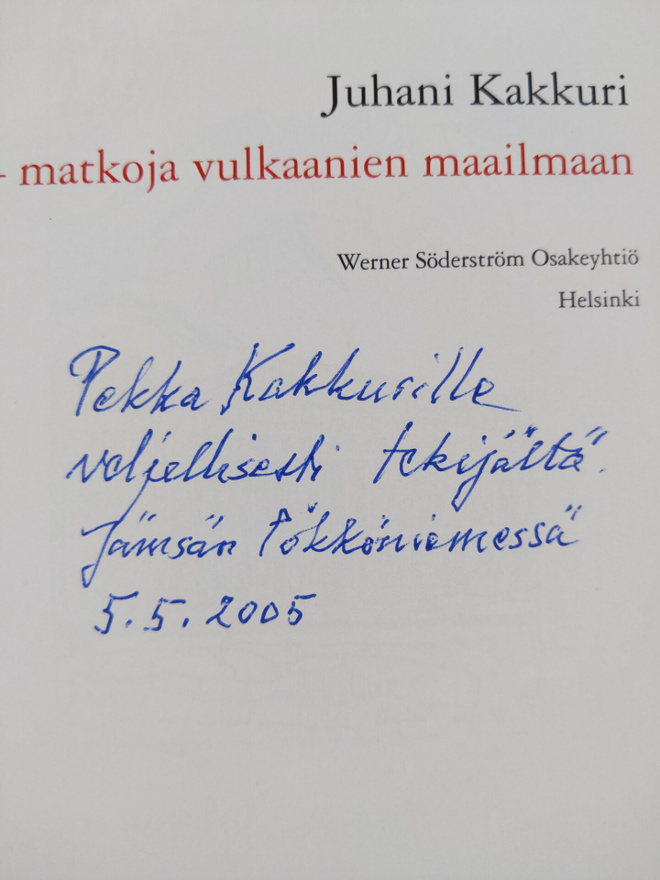 Juhani Kakkuri
- matkoja vulkaanien maailmaan
Werner Söderström Osakeyhtiö
Helsinki
Pekka Kakkurille
veljellisesti tekijältä.
Jämsän Pökköniemessä
5.5.2005